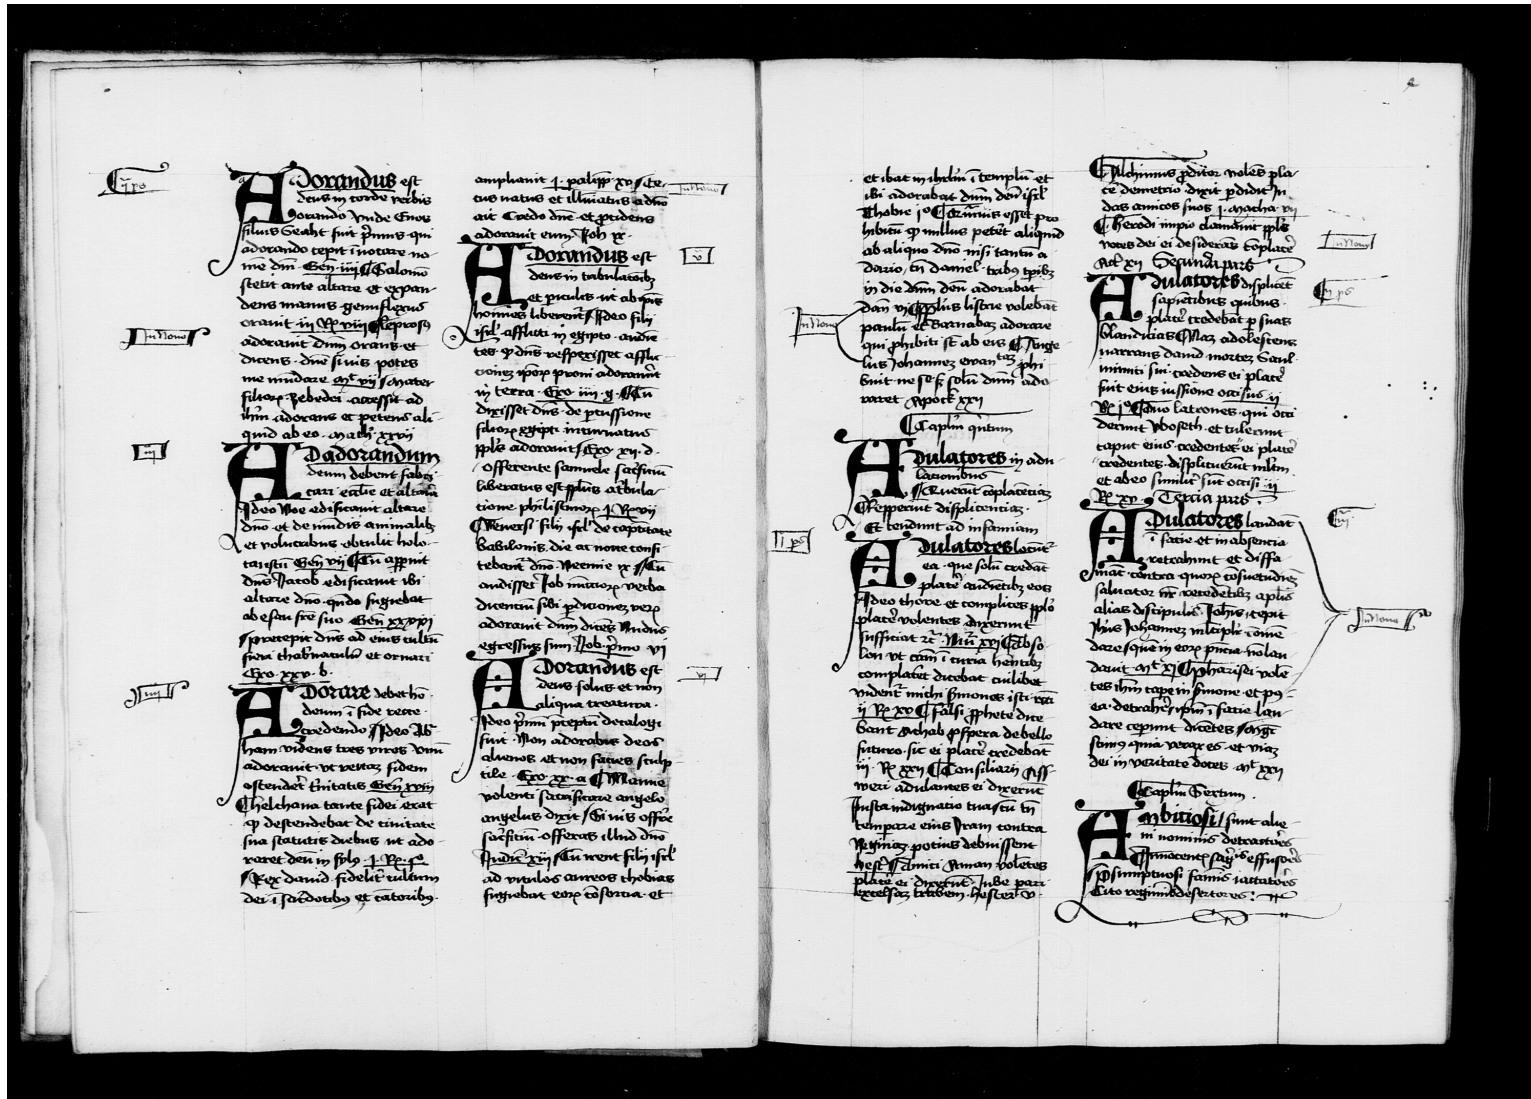 Adorandus est
deus in corde verbis
orando Unde Enos
filius Seth fuit prim͂us qui
adorando cepit īuocare no-
mē dn̄i. Gen̄ iiij Salomō
stetit ante altare et expan-
dens manus genuflexus
orauit iii R̄ viij Leprosꝯ
adorauit dnm̄ orans et
dicens. dn̄e si vis potes
me mūdare Mt̄ viij Mater
filioꝝ zebedei accessit ad
ihm̄ adorans et petens ali
quid ab eo. Math. xx
Ad adorandum
deum debent fabri
cari ecclīe et altaria
Ideo Noe edificauit altare
dn̄o et de mūdis animalibꝫ
et volucribus obtulit holo-
caustū Gen̄ viij Cū apparuit
dn̄s Jacob edificauit ibi
altare dn̄o. qn̄do fugiebat
ab esau frē suo Gen̄ xxxv
Precepit dn̄s ad eius cultū
fieri tab̄naculū et ornari
Exo xxv. b.
Adorare debet ho.
deum ī fide recte.
credendo Ideo Ab
ham videns tres viros vnū
adorauit. vt veraꝫ fidem
ostenderet t̄nitatis Gen̄ xviij
Helchana tante fidei erat
ꝙ descendebat de ciuitate
sua statutis diebus ut ado-
raret deū in sylo. j. R̄. jº.
Rex dauid fidelit̄ cultum
dei ī sac̄dotibꝯ et cātoribꝯ.
ampliauit j. palipp̄. xv Ce-
cus natus et illuīatus a dn̄o
ait Credo dn̄e et procidens
adorauit eum Joh̄ ix.
Adorandus est
deus in tribulacionibꝫ
et piculis ut ab ip̄is
homines liberent̄ Ideo filij
isrł afflicti in egipto. audiē
tes. ꝙ dn̄s respexisset afflic-
cionez ipoꝝ proni adorauerūt
in terra. Exo. iiij. g. Cū
dixisset dn̄s. de percussione
filioꝝ egipti incuruatus
ppl̄s adorauit Exo. xij. d.
Offerente samuele sacrificiū
liberatus est ppl̄us a tribula-
cione philistinoꝝ j. R̄ vij
Reuersi filij isrł de captiuitate
babilonis. die ac nocte confi-
tebant̄ dn̄o. Neemie ix. Cū
audisset Job multoꝝ verba
dicenciū sibi perdicionez reꝝ
adorauit dnm̄ dicēs Nudus
egressus sum Job p̄mo
Adorandus est
deus solus et non
aliqua creatura.
Ideo p̄mū preceptū decalogi
fuit. Non adorabis deos
alienos et non facies sculp-
tile. Exo. xx. a Manue
volenti sacrificare angelo
angelus dixit Si vis offerre
sac̄ficiū. offeras illud dn̄o
Judicū xiij Cū irent filij isrł
ad vitulos aureos thobias
fugiebat eoꝝ cōsorcia. et
et ibat in ihrlm̄ ī templū et
ibi adorabat dnm̄ deū isrł
Thobie jº Cū
hibitū ꝙ nullus peteret aliquid
ab aliquo dn̄o nisi tantū a
dario, tn̄ daniel. tribus t̄pibꝫ
in die dnm̄ deū adorabat
Dan̄ vj Ppl̄us listrie volebāt
paulū et Barnabaꝫ adorare
qui prohibiti sūt ab eis Ange
lus Johannez ewan͂ prohi
buit ne se sed solū dnm̄ ado-
raret Apoc xxij
Caplm̄ q̄ntum
Adulatores in adu
lacionibus
Querūt cōplacenciaꝫ
Repperiūt displicencias.
Et tendunt ad infamiam
Adulatores locūt̄
ea. que solū credūt
placere audientibꝫ eos
Ideo chore et complices ppl̄o
placere volentes dixerunt
sufficiat &c. Nū xvj Abso-
lon vt causā ī curia hentibꝫ
complaceret dicebat cuilibet
videntur michi sermones isti. &c.
ij R̄ xv Falsi prophete dice
bant Achab prospera de bello
futuro. sic ei placere credebāt
iij. R̄ xxij Consiliarij Ass-
weri adulantes ei dixerūt
Justa indignacio tua cū tn̄
temperare eius Iram contra
Reginaꝫ pocius debuissent
Hest̄ Amici Aman volētes
placere ei dixerūt. Jube pari
excelsaꝫ trabem. hester v.
Alchimus proditor volēs pla-
cere demetrio. dixit perdidit Iu
das amicos suos j. Macha. vij
Herodi impio clamāunt ppl̄s
voces dei ei desiderās cōplacere
Act. xij Secunda pars
Adulatores displicent
sapientibus quibus.
placere credebāt per suas
blandicias Naꝫ adolescens
narrans dauid mortez Saul.
inimici sui credens ei placere
fuit eius iussione occisus ij
R̄ jº Duo latrones. qui occi
derunt Yboseth. et tulerunt
caput eius. credentes ei placere
credentes. displicuerunt mltm̄.
et ab eo similit̄ sūt occisi ij
Tercia pars.
Adulatores laudant
ī facie et in absencia
retrahunt et diffa-
mant contra quoꝝ cōsuetudinē
saluator nr̄ recedētibꝫ
alias discipulis Joh̄is, cepit
ihūs Johannez mltiplr̄ cōmen
dare Mt̄ xj Pharisei volē-
tes ihm̄ capere in sermone. et pꝯ-
ea. detrahere ipm̄ ī facie lau-
dare ceperunt dicentes Mgr̄
scimꝯ quia verax es. et viaꝫ
dei in veritate doces. Mt̄ xxij
Caplm̄ Sextum.
Ambiciosi sunt alie-
ni nominis detractores
Innocentis sāguīs effusores
Presumptuosi famis iactatores
Cito regiminis desertores.
In Nouo
iij
iiij
In Nouo
v
vj
In Nouo
j ps
In Nouo
ij ps
iij
In Nouo